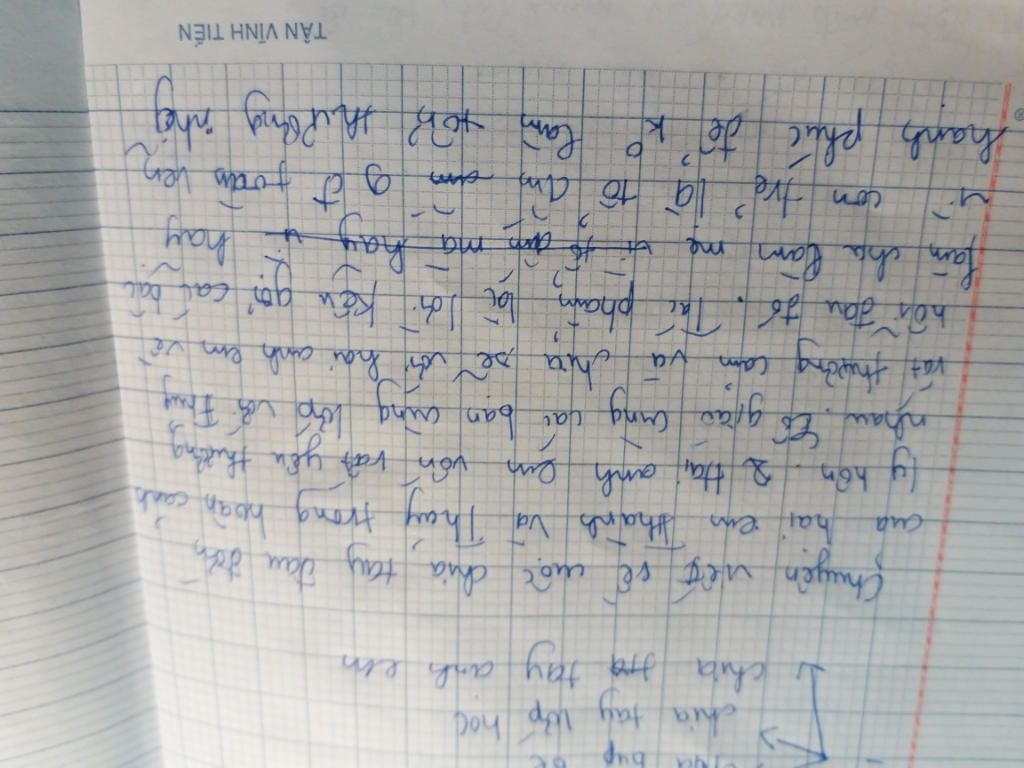 búp bê
chia tay lớp học
chia tay anh em
Chuyện viết về cuộc chia tay đau đớn
của hai em Thành và Thủy trong hoàn cảnh
ly hôn. 2 Hai anh em vốn rất yêu thương
nhau. Cô giáo cùng các bạn cùng lớp với Thủy
rất thương cảm và chia sẻ với hai anh em về
nỗi đau đó. Tác phẩm là lời kêu gọi các bậc
làm cha làm mẹ vì tổ ấm mà hãy vì hãy
vì con trẻ là tổ ấm gđ toàn vẹn
hạnh phúc để k làm tổn thương nhữg
TÂN VĨNH TIẾN